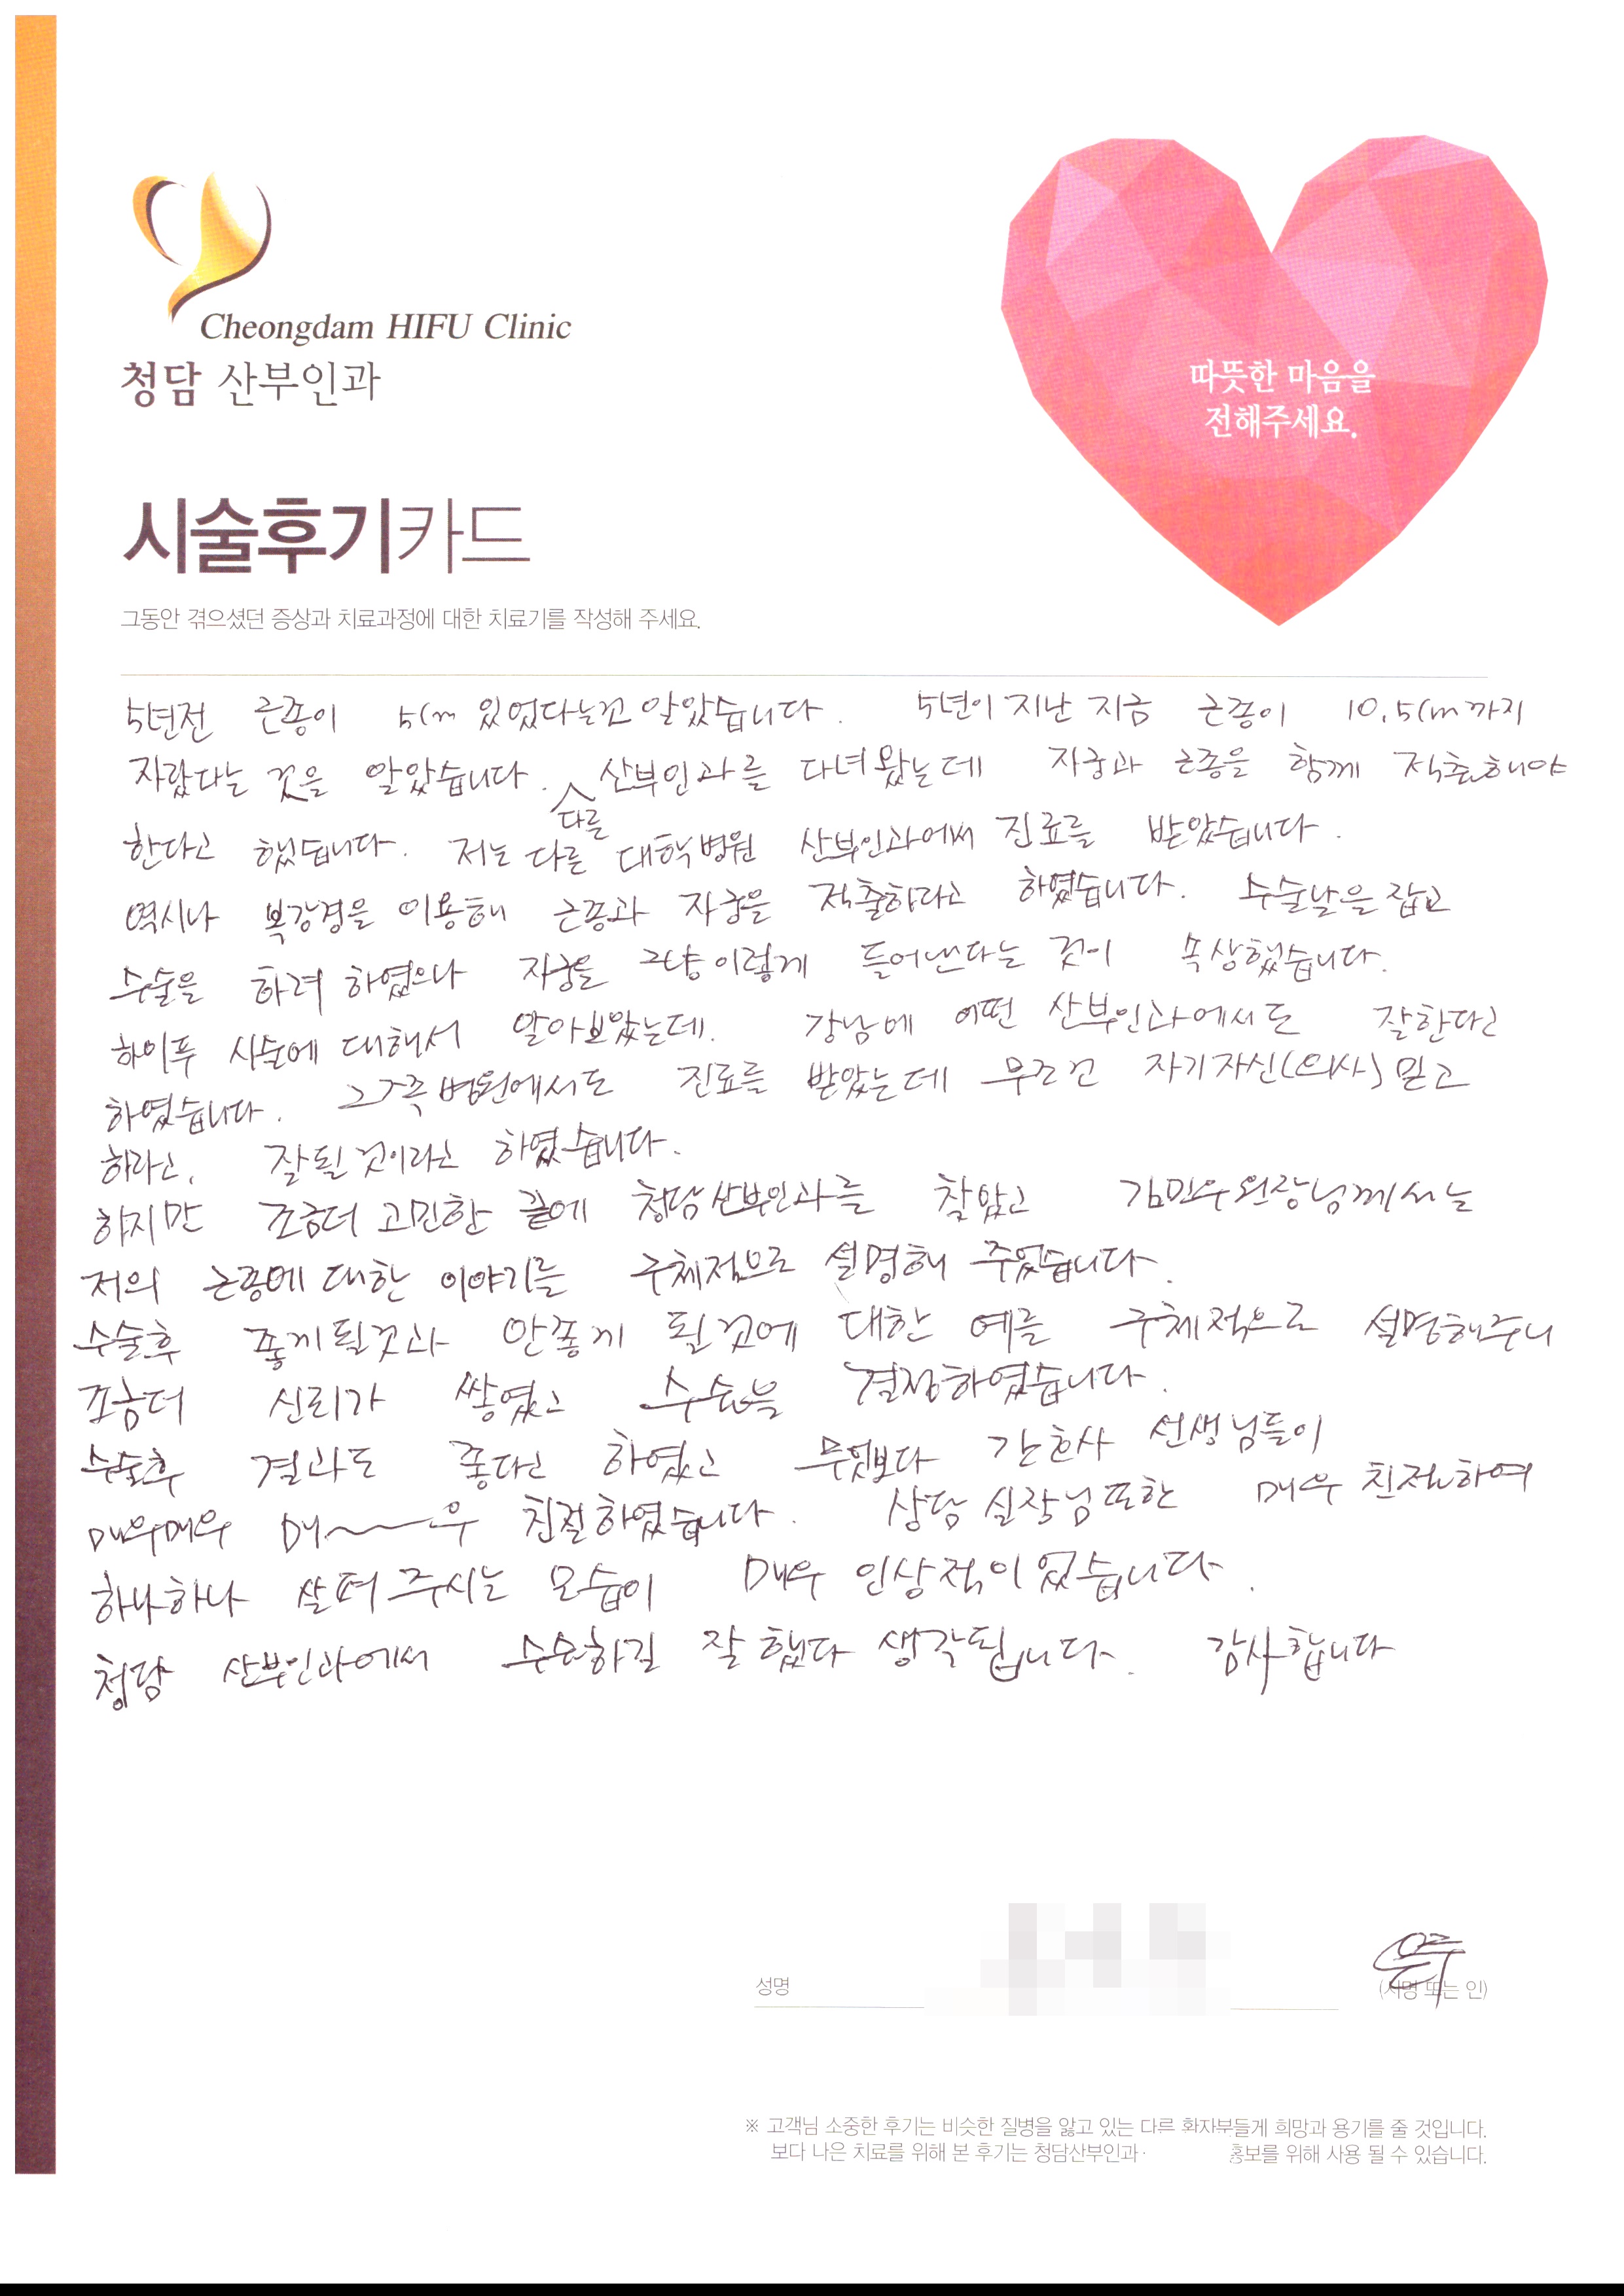 Cheongdam HIFU Clinic
청담 산부인과
따뜻한 마음을
전해주세요.
시술후기카드
그동안 겪으셨던 증상과 치료과정에 대한 치료기를 작성해 주세요.
5년전 근종이 5cm 있었다는걸 알았습니다. 5년이 지난 지금 근종이 10.5cm까지
자랐다는 것을 알았습니다. 산부인과를 다녀왔는데 자궁과 근종을 함께 적출해야
다른
한다고 했습니다. 저는 다른 대학병원 산부인과에서 진료를 받았습니다.
역시나 복강경을 이용해 근종과 자궁을 적출하라고 하였습니다. 수술날을 잡고
수술을 하려 하였으나 자궁을 그냥 이렇게 들어낸다는 것이 속상했습니다.
하이푸 시술에 대해서 알아보았는데. 강남에 어떤 산부인과에서도 잘한다고
하였습니다. 그쪽 병원에서도 진료를 받았는데 무조건 자기자신(의사) 믿고
하라고. 잘될것이라고 하였습니다.
하지만 조금더 고민한 끝에 청담산부인과를 찾았고 김민우원장님께서는
저의 근종에 대한 이야기를 구체적으로 설명해 주었습니다.
수술후 좋게될것과 안좋게 될것에 대한 예를 구체적으로 설명해주니
조금더 신리가 쌓였고 수술을 결정하였습니다.
수술후 결과도 좋다고 하였고 무엇보다 간호사 선생님들이
매우매우 매~~우 친절하였습니다. 상담 실장님또한 매우 친절하여
하나하나 살펴주시는 모습이 매우 인상적이었습니다.
청담 산부인과에서 수술하길 잘 했다 생각됩니다. 감사합니다
성명
(서명 또는 인)
※ 고객님 소중한 후기는 비슷한 질병을 앓고 있는 다른 환자분들게 희망과 용기를 줄 것입니다.
보다 나은 치료를 위해 본 후기는 청담산부인과· 홍보를 위해 사용 될 수 있습니다.